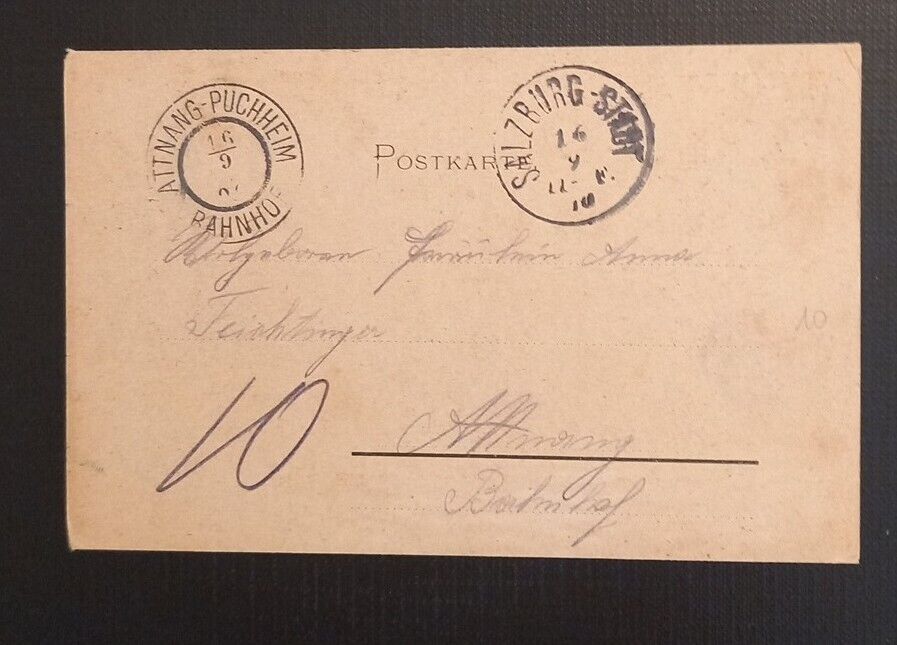 ATTNANG-PUCHHEIM
16
9
BAHNHOF
SALZBURG-STADT
16
9
11-V.
10
POSTKARTE
Wolgeboren Fräulein Anna
Feichtinger
10
10
Attnang
Bahnhof